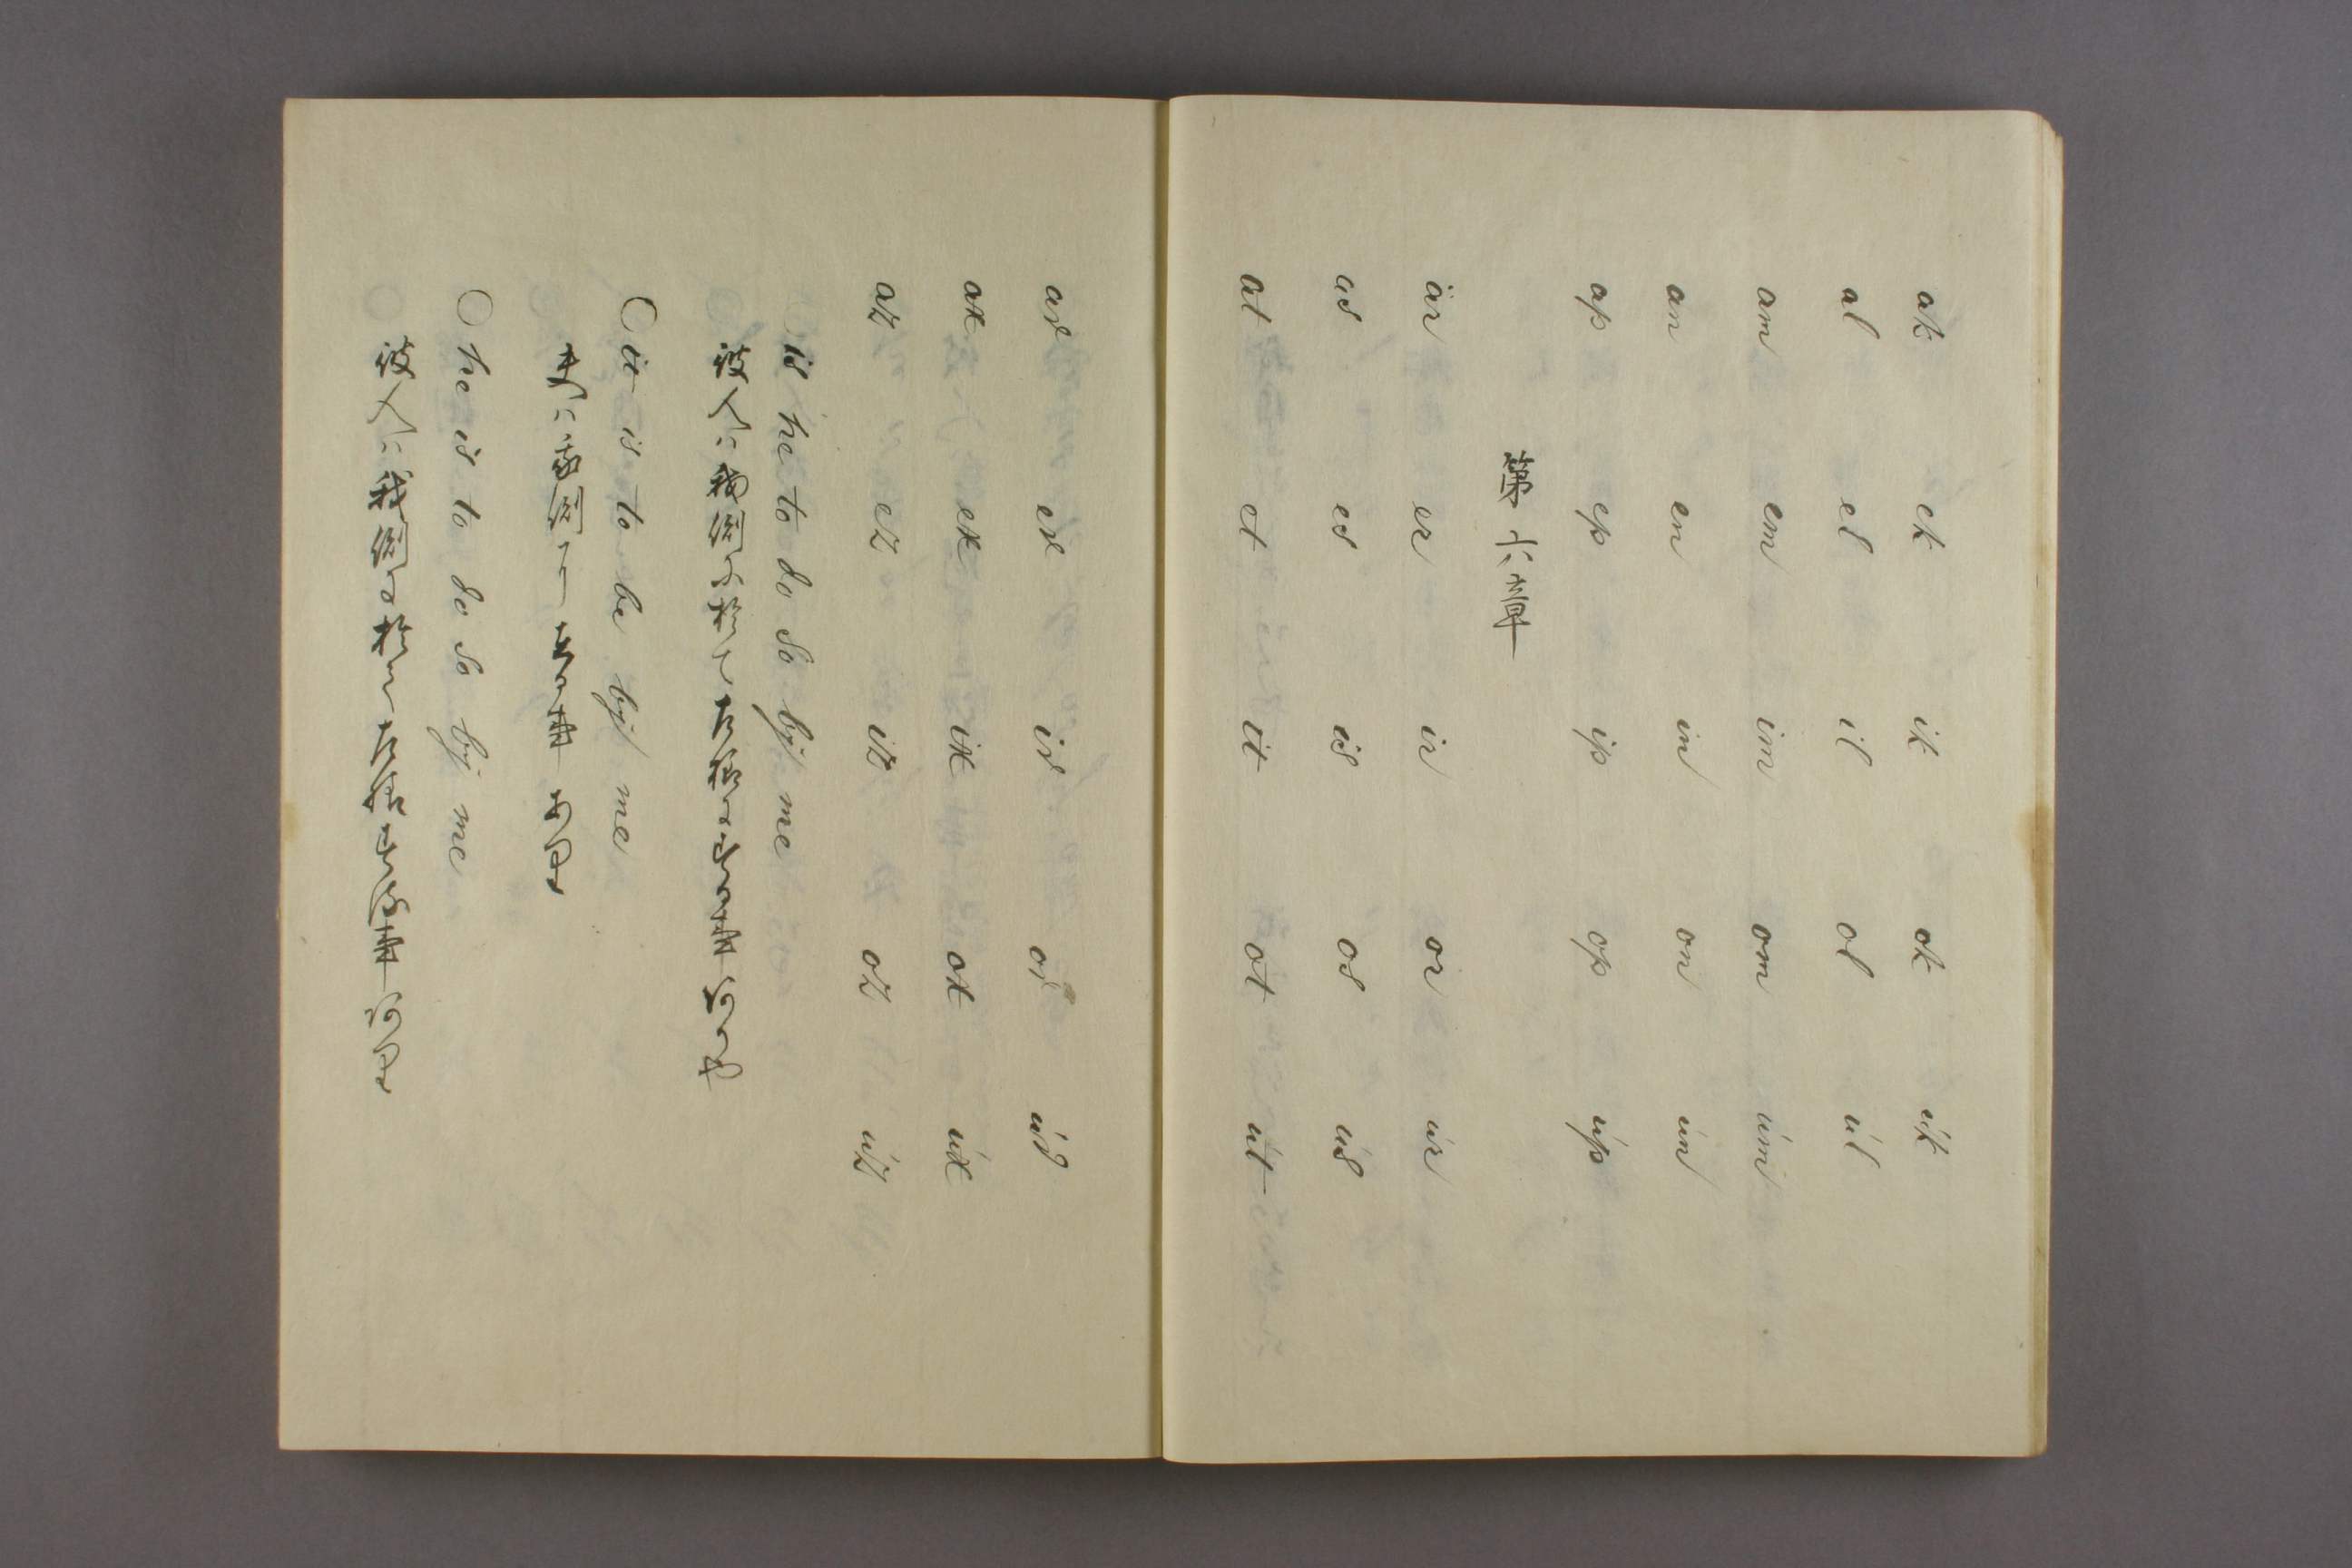 ak ek ik ok uk
al el il ol ul
am em im om um
an en in on un
ap ep ip op up
第六章
ar er ir or ur
as es is os us
at et it ot ut
av ev iv ov uv
ax ex ix ox ux
az ez iz oz uz
is he to do so by me
彼人ハ我側に於て左様にする事あるや
○ it is to be by me
夫ハ我側にある事あり
○ he is to do so by me
彼人ハ我側に於て左様する事あり